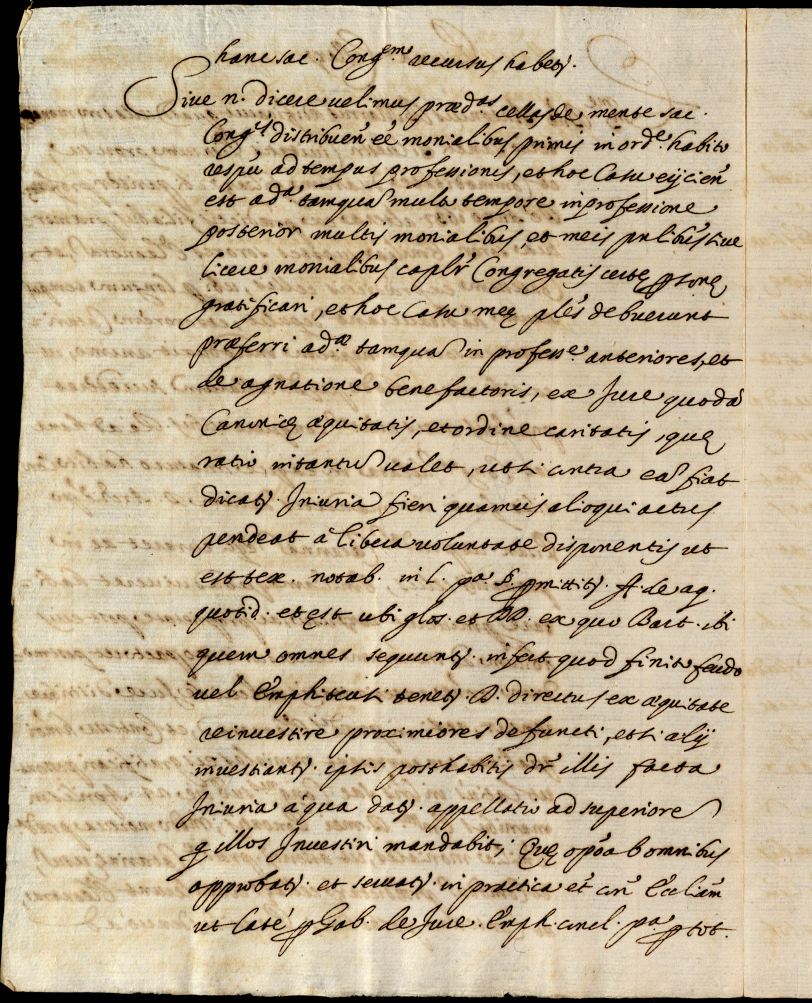 hanc sac. Cong.em recursus habetʳ.
Sive n. dicere velimus præd.as cellas de mente sac.
Cong.is distribuen̄ eē monialibus primis in ord.e habito
respū ad tempus professionis, et hoc casu eijcien̄
est ad.a tamqua multo tempore in professione
posterior multis monialibus, et meis pn̄libus sive
licere monialibus caplr̄ Congregatis certę psonę
gratificari, et hoc Casu meę plēs debuerunt
præferri ad.æ tamqua in profess.e anteriores, et
de agnatione benefactoris, ex Jure quodā
Canonicę æquitatis, et ordine caritatis, quę
ratio in tantu valet, ut si contra ea fiat
dicatʳ Iniuria fieri quamvis alioqui actus
pendeat a libera voluntate disponentis ut
est tex. notab. in l. pa. §. pmittitʳ ff. de aq.
quotid. et ęst ubi glos. et DD. ex quo Bart. ibi
quem omnes sequuntʳ infert quod finito feudo
vel Emphiteusi tenetʳ D. directus ex æquitate
reinvestire proximiores defuncti, et si alij
investiantʳ ipsis posthabitis dr̄ illis facta
Iniuria a qua datʳ appellatio ad superiore
q illos Investiri mandabit; Quę opō ab omnibus
approbatʳ et servatʳ in practica et con̄ Eccliam
ut latē p Gab. de Jure Emph. concl. pa. p tot.